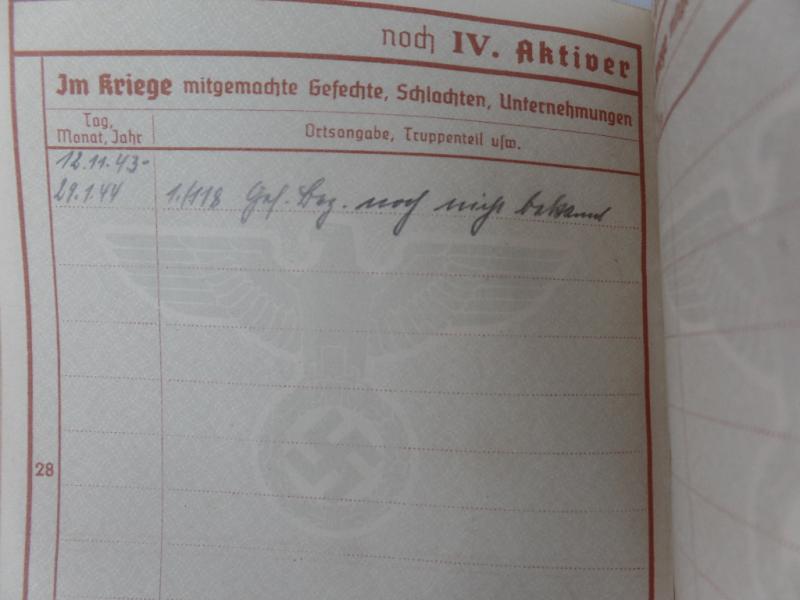 noch IV. Aktiver
Im Kriege mitgemachte Gefechte, Schlachten, Unternehmungen
Tag, Monat, Jahr
Ortsangabe, Truppenteil usw.
12.11.43-
29.1.44 1./118 Gef. Bez. noch nicht bekannt
28